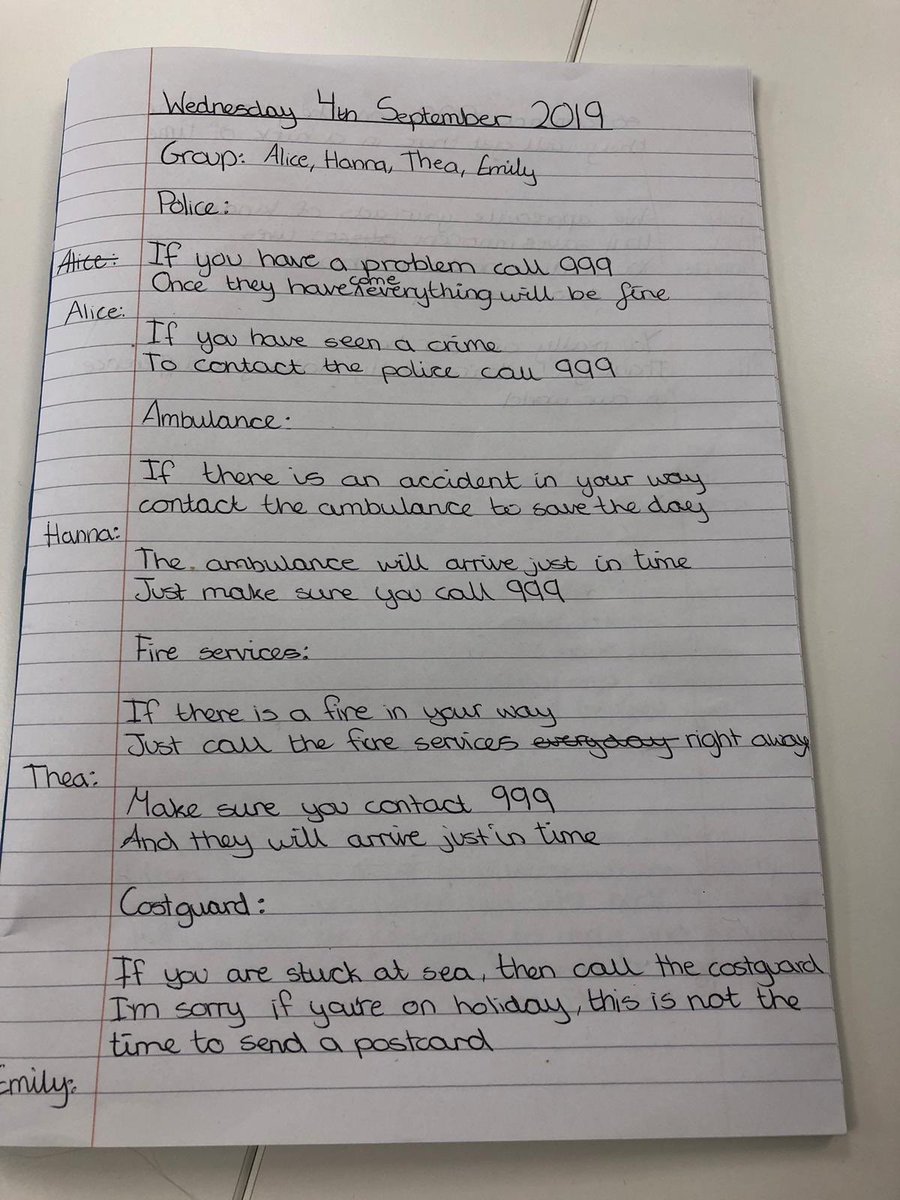 Wednesday 4th September 2019
Group: Alice, Hanna, Thea, Emily
Police:
Alice:
If you have a problem call 999
Once they have come everything will be fine
Alice:
If you have seen a crime
To contact the police call 999
Ambulance:
If there is an accident in your way
contact the ambulance to save the day
Hanna:
The ambulance will arrive just in time
Just make sure you call 999
Fire services:
If there is a fire in your way
Just call the fire services everyday right away
Thea:
Make sure you contact 999
And they will arrive just in time
Costguard:
If you are stuck at sea, then call the costguard
I'm sorry if you're on holiday, this is not the
time to send a postcard
Emily: